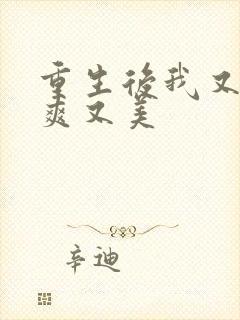 重生後我又
爽又美
辛迪